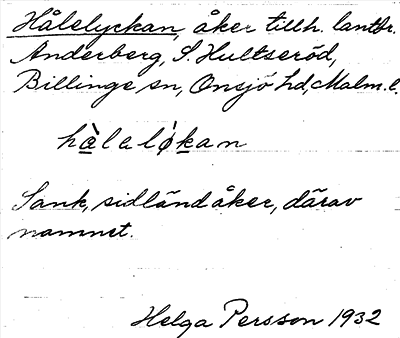 Hålelyckan, åker tillh. lantbr.
Anderberg, S. Hultseröd,
Billinge sn, Onsjö hd, Malm. l.
hàlaløkan
Sank, sidländ åker, därav
namnet.
Helga Persson 1932